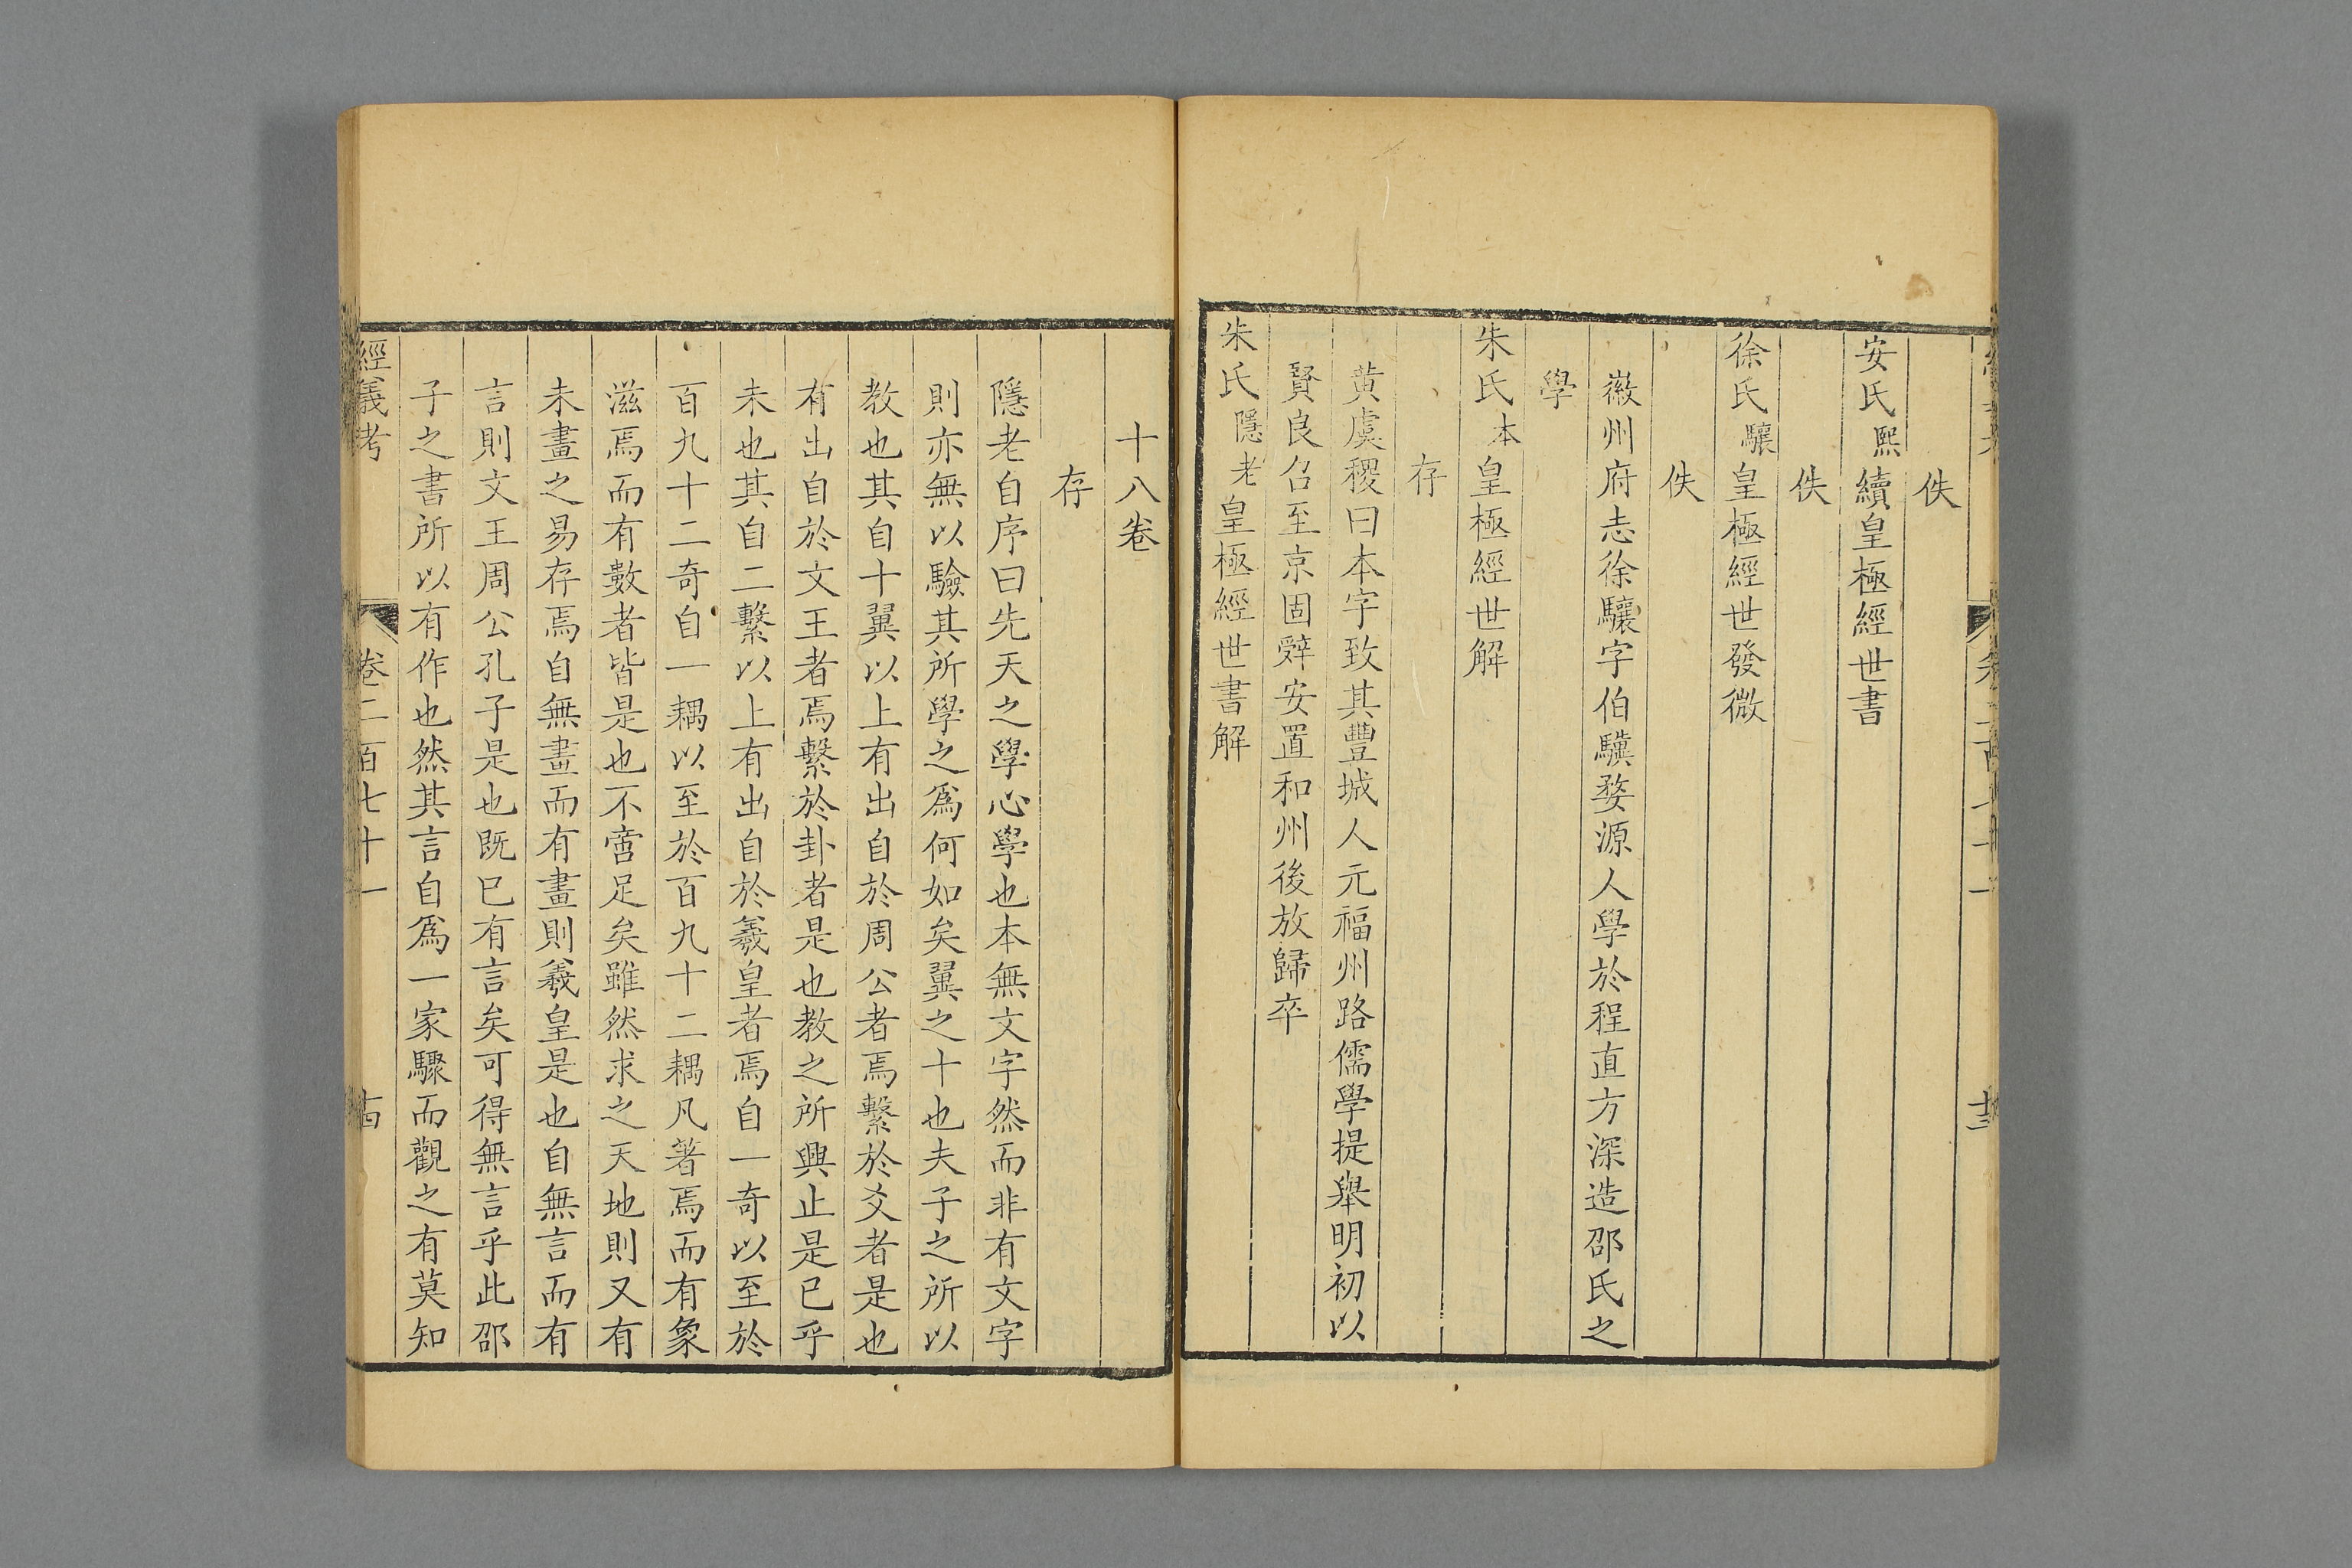 佚
安氏熙續皇極經世書
佚
徐氏驤皇極經世發微
佚
徽州府志徐驤字伯驥婺源人學於程直方深造邵氏之
學
朱氏本皇極經世解
存
黃虞稷曰本字致其豐城人元福州路儒學提舉明初以
賢良召至京固辤安置和州後放歸卒
朱氏隱老皇極經世書解
十八卷
存
隱老自序曰先天之學心學也本無文字然而非有文字
則亦無以驗其所學之爲何如矣翼之十也夫子之所以
教也其自十翼以上有出自於周公者焉繫於爻者是也
有出自於文王者焉繫於卦者是也教之所興止是已乎
未也其自二繫以上有出自於羲皇者焉自一奇以至於
百九十二奇自一耦以至於百九十二耦凡著焉而有象
滋焉而有數者皆是也不啻足矣雖然求之天地則又有
未畫之易存焉自無畫而有畫則羲皇是也自無言而有
言則文王周公孔子是也既已有言矣可得無言乎此邵
子之書所以有作也然其言自爲一家驟而觀之有莫知
經義考 卷二百七十一 十四